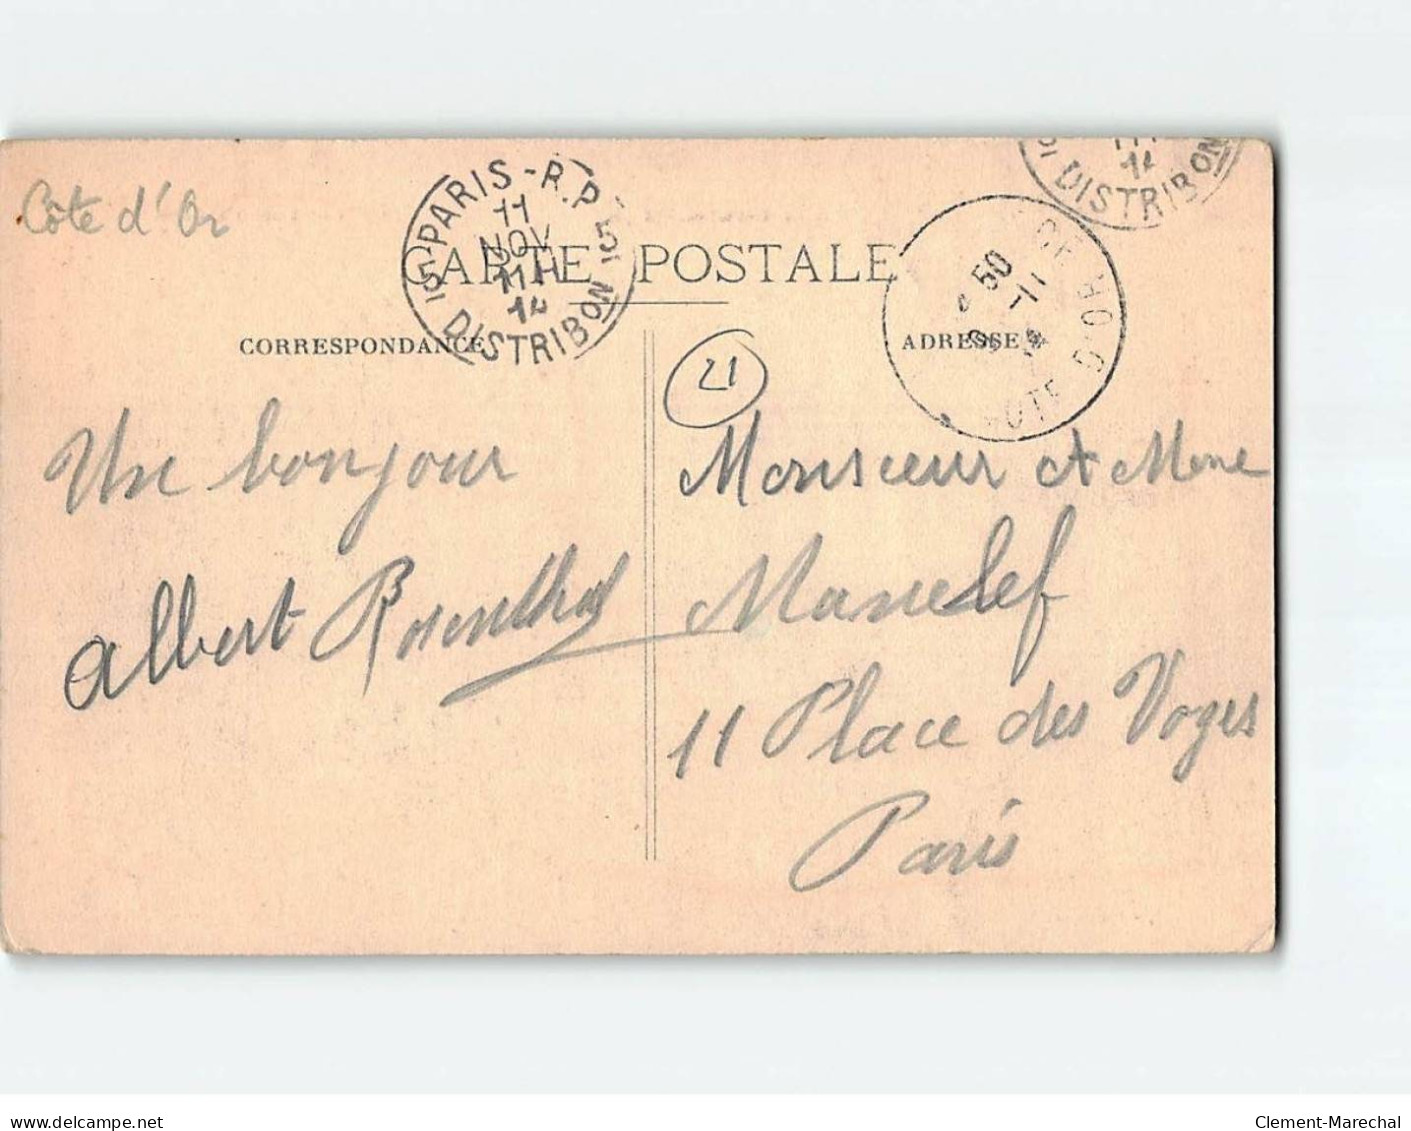 Côte d'Or
PARIS - R.P.
11
NOV
11H
14
15 15
DISTRIBON
14
DISTRIBON
CARTE POSTALE
50
11
14
COTE D'OR
CORRESPONDANCE
ADRESSE
21
Un bonjour
Albert Rosenthal
Monsieur et Mme
Manelef
11 Place des Voges
Paris
delcampe.net
Clement-Marechal